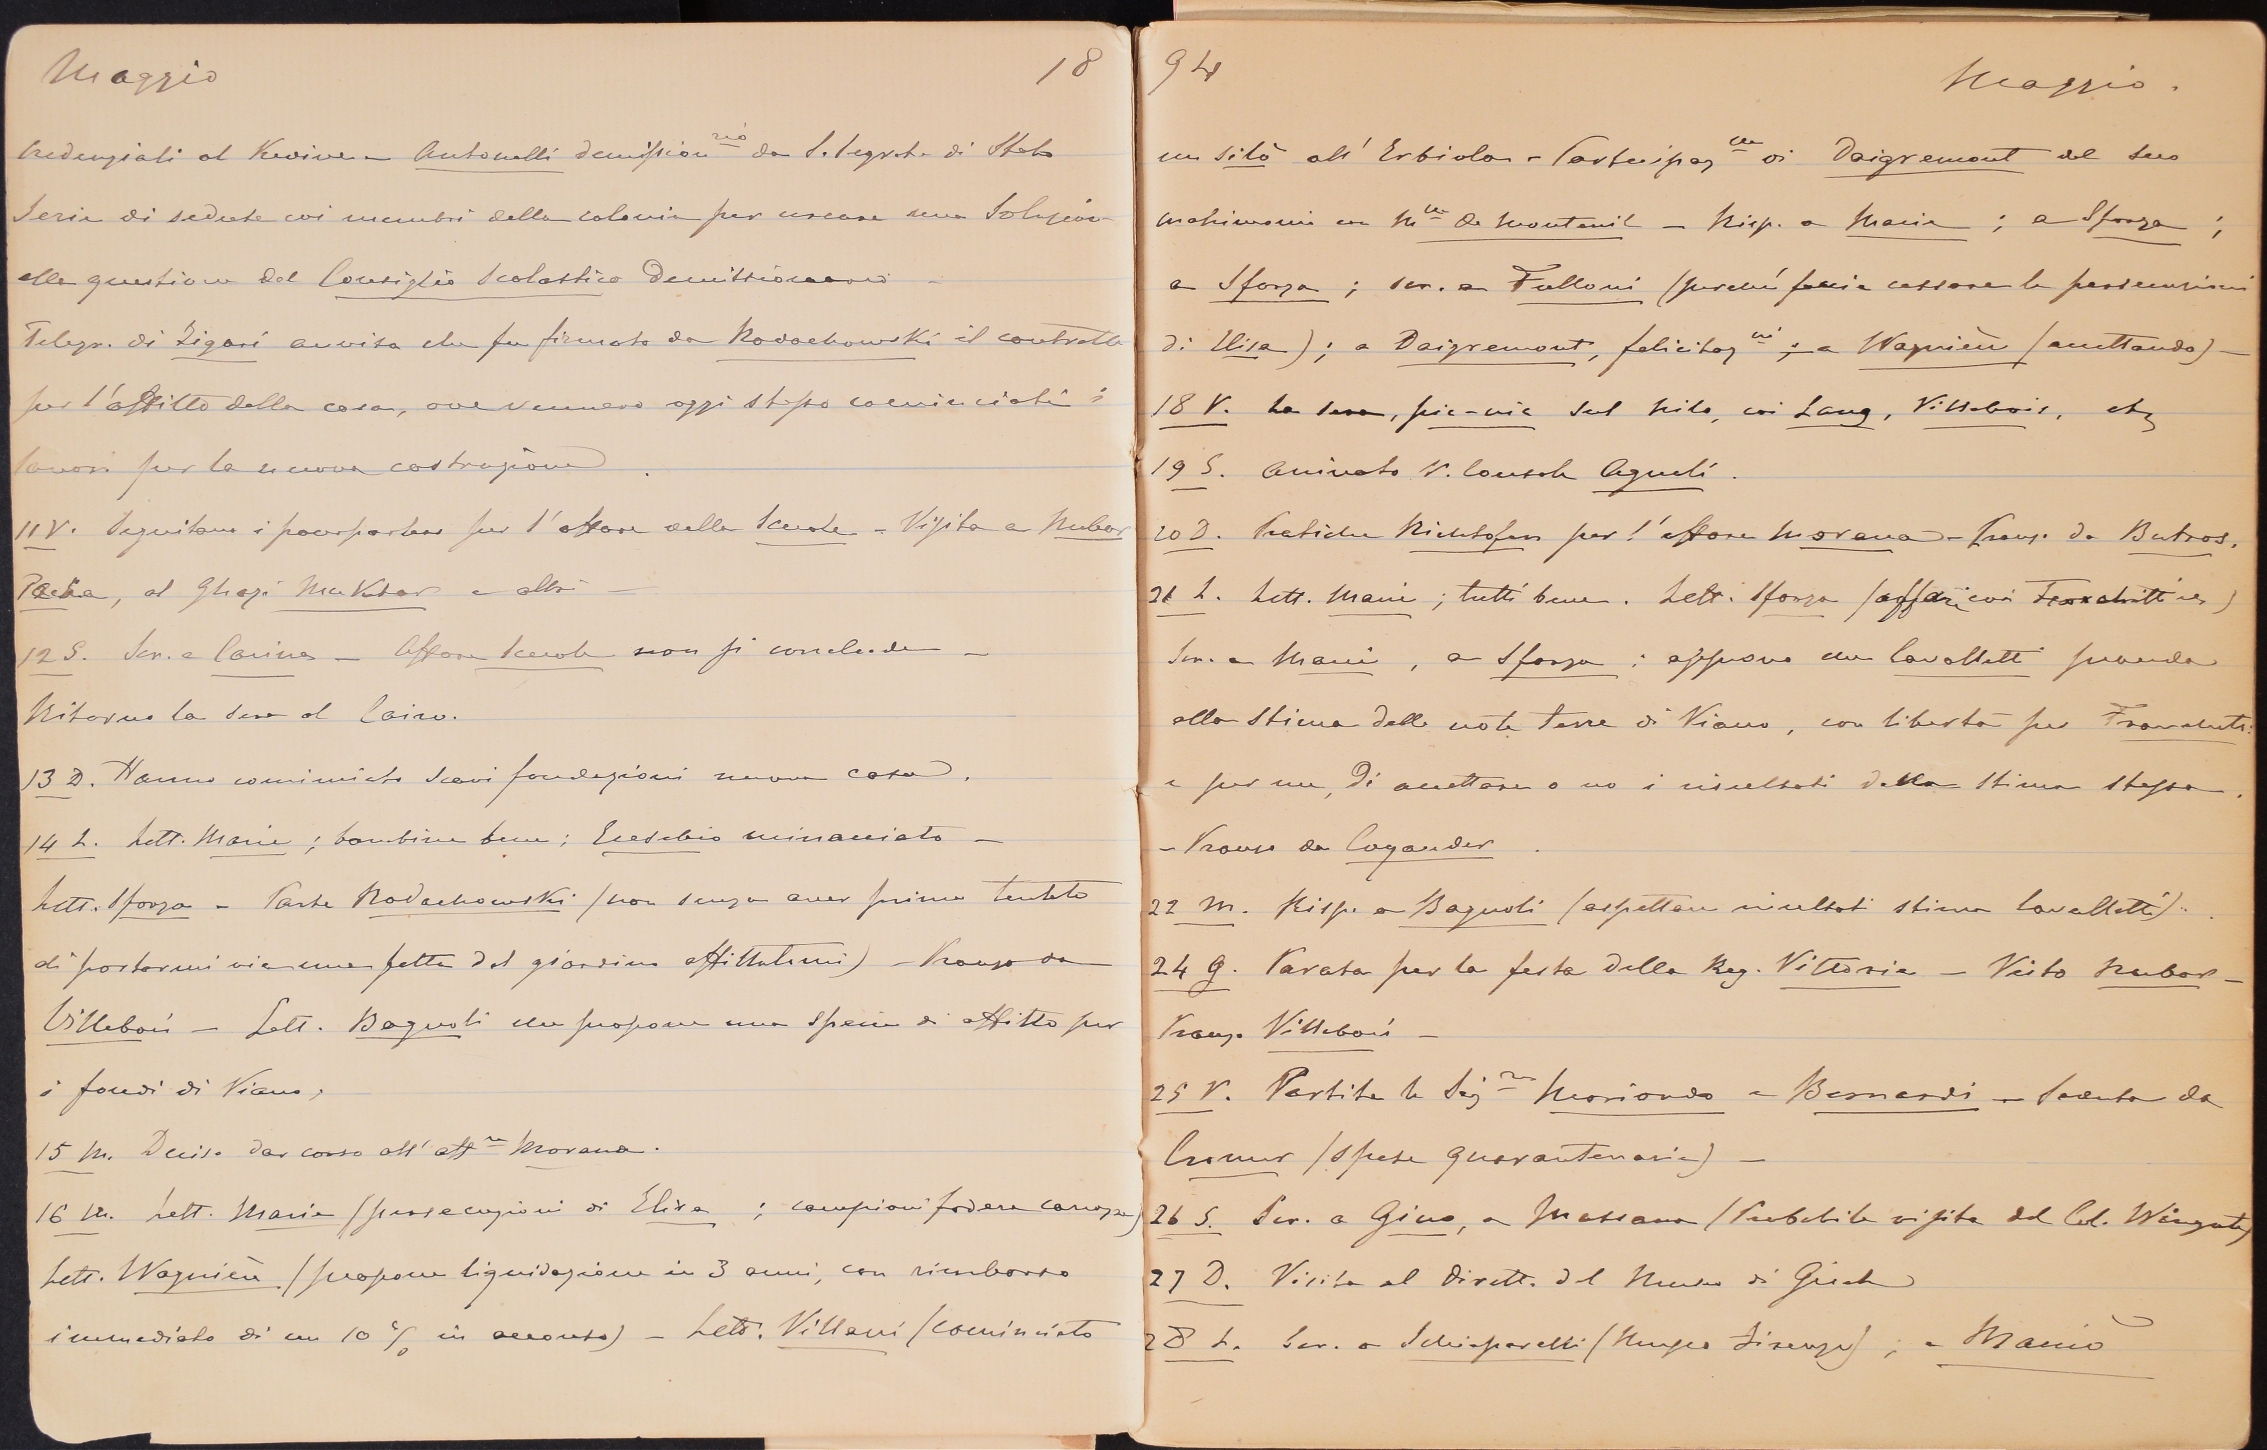 Maggio 18
credenziali al Kedive – Antonelli demission.rio da S. Segret. di Stato
Serie di sedute coi membri della colonia per cercare una Soluzione
alla questione del Consiglio Scolastico Demissionario –
Telegr. di Zigari avvisa che fu firmato da Rodochowski il contratto
per l'affitto della casa, ove vennero oggi stesso cominciati i
lavori per la nuova costruzione.
11 V. Seguitano i pourparlers per l'affare delle Scuole – Visita a Nubar
Pacha, al Ghazi Muktar e altri –
12 S. Scr. a Carina – Affare Scuole non si conclude –
Ritorno la sera al Cairo.
13 D. Hanno cominciato scavi fondazioni nuova casa.
14 L. Lett. Maria; bambine bene; Eusebio minacciato –
Lett. Sforza – Parte Rodochowski (non senza aver prima tentato
di portarmi via una fetta del giardino affittatomi) – Pranzo da
Villebois – Lett. Bagnoli che propone una specie di affitto per
i fondi di Viano;
15 M. Deciso dar corso all'aff.re Morana.
16 M. Lett. Maria (persecuzioni di Elisa; campioni fodera carrozza)
Lett. Wagnière (propone liquidazione in 3 anni, con rimborso
immediato di un 10 % in acconto) – Lett. Villani (cominciato
94 Maggio.
un silò all'Erbiola – Partecipaz.ne di Daigremont del suo
matrimonio con M.lle de Montenil – Risp. a Maria; a Sforza;
a Sforza; scr. a Fulloni (perché faccia cessare le persecuzioni
di Elisa); a Daigremont, felicitaz.ni; a Wagnière (accettando) –
18 V. La sera, pic-nic sul Nilo, coi Lang, Villebois, etc
19 S. Arrivato V. Console Agneli.
20 D. Pratiche Richtofen per l'affare Morana – Pranz. da Butros.
21 L. Lett. Maria; tutti bene. Lett. Sforza (affari coi Franchetti)
Scr. a Maria, a Sforza: approvo che Cavalletti proceda
alla stima delle note terre di Viano, con libertà per Franchetti
e per me, di accettare o no i risultati della stima stessa.
– Pranzo da Coyander.
22 M. Risp. a Bagnoli (aspettare risultati stima Cavalletti).
24 G. Parata per la festa della Reg. Vittoria – Visto Nubar –
Pranz. Villebois –
25 V. Partite le Sig.re Moriondo e Bernardi – Seduta da
Cromer (Spese quarantenarie) –
26 S. Scr. a Gino, a Massaua (Probabile visita del Col. Wingate)
27 D. Visita al Dirett. del Museo di Gizeh
28 L. Scr. a Schiaparelli (Museo Firenze); a Maria